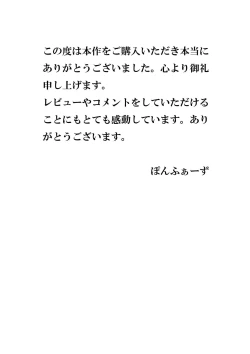 この度は本作をご購入いただき本当に
ありがとうございました。心より御礼
申し上げます。
レビューやコメントをしていただける
ことにもとても感動しています。あり
がとうございます。
ぽんふぁーず